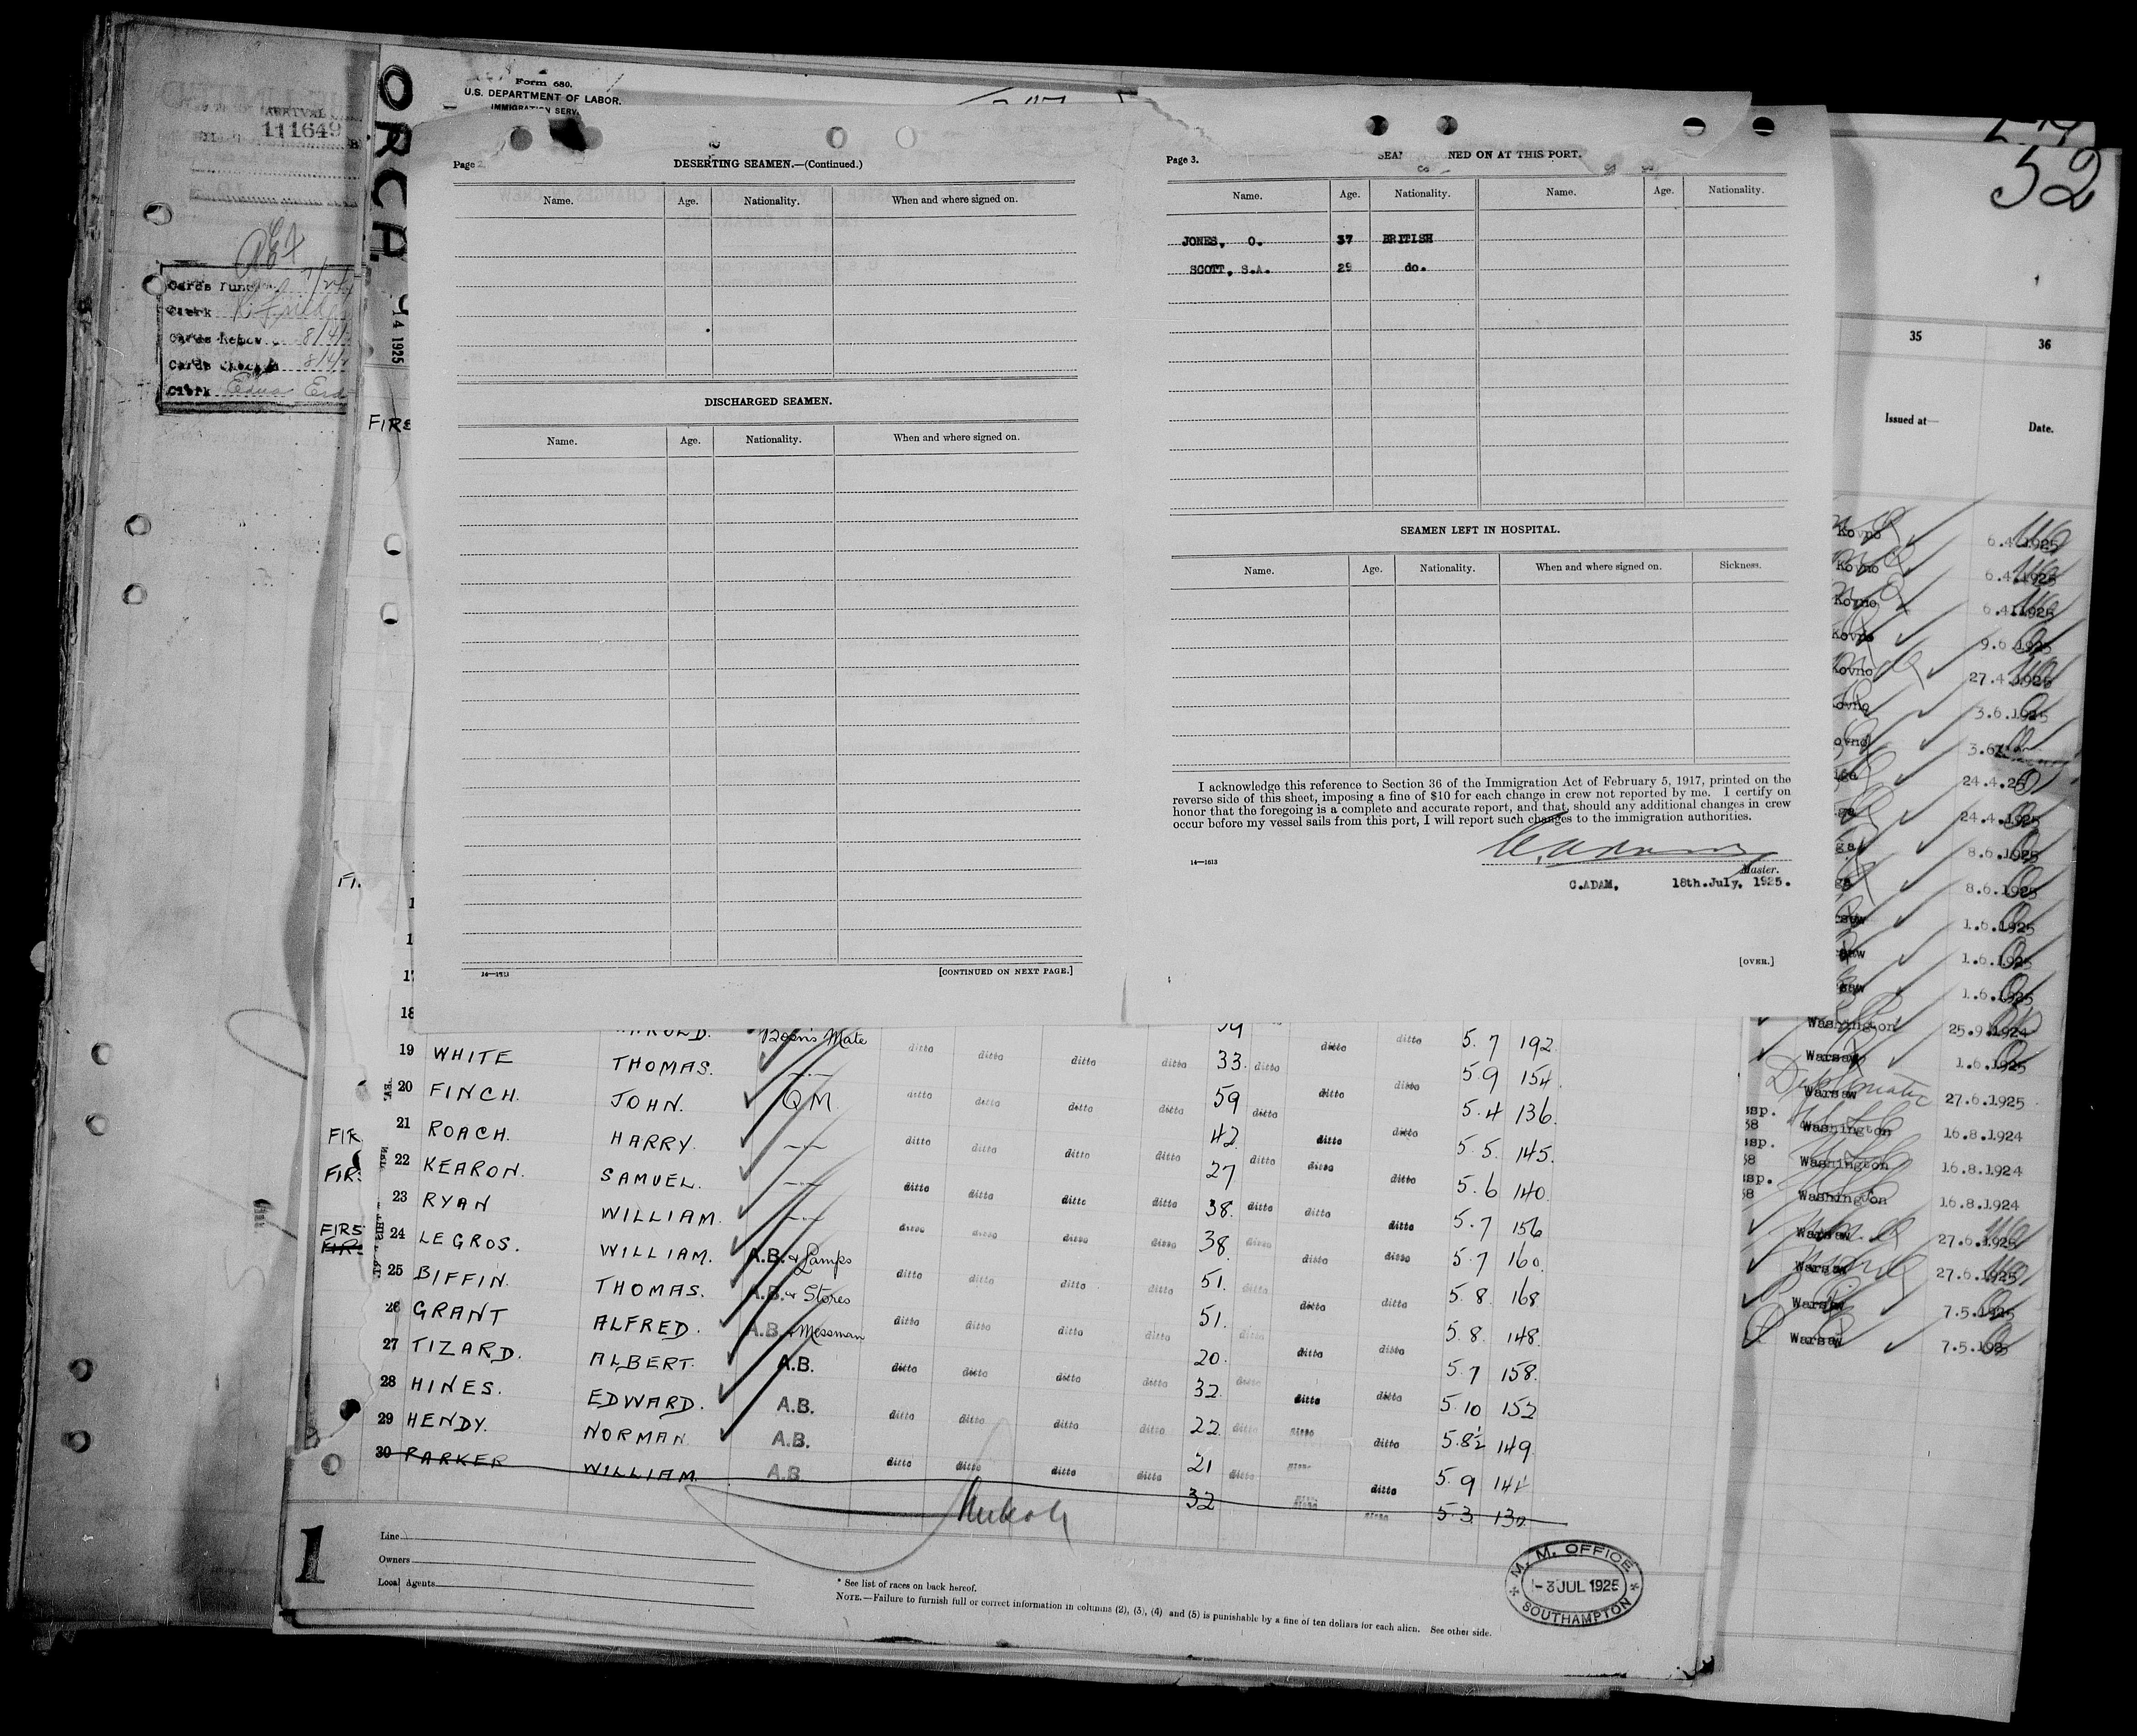 ARRIVAL
111649
Cards
Clerk
Cards
Cards
Clerk Edna
ORCA.
4 1925
Form 680.
U.S. DEPARTMENT OF LABOR.
IMMIGRATION SERV.
Page 2
DESERTING SEAMEN.—(Continued.)
Name. Age. Nationality. When and where signed on.
DISCHARGED SEAMEN.
Name. Age. Nationality. When and where signed on.
14—1613
[CONTINUED ON NEXT PAGE.]
Page 3.
SEA NED ON AT THIS PORT.
Name. Age. Nationality. Name. Age. Nationality.
JONES, O. 37 BRITISH
SCOTT, S.A. 29 do.
SEAMEN LEFT IN HOSPITAL.
Name. Age. Nationality. When and where signed on. Sickness.
I acknowledge this reference to Section 36 of the Immigration Act of February 5, 1917, printed on the
reverse side of this sheet, imposing a fine of $10 for each change in crew not reported by me. I certify on
honor that the foregoing is a complete and accurate report, and that, should any additional changes in crew
occur before my vessel sails from this port, I will report such changes to the immigration authorities.
14—1613
Master.
C.ADAM, 18th.July, 1925.
[OVER.]
52
35 36
Issued at— Date.
Kovno 6.4.1925
Kovno 6.4.1925
Kovno 6.4.1925
Kovno 9.6.1925
Kovno 27.4.1925
ovno 3.6.1925
ovno 3.6.
iga 24.4.25
ga 24.4.1925
ga 8.6.1925
ga 8.6.1925
saw 1.6.1925
saw 1.6.1925
saw 1.6.1925
Washington 25.9.1924
Warsaw 1.6.1925
Diplomatic
Warsaw 27.6.1925
Washington 16.8.1924
Washington 16.8.1924
Washington 16.8.1924
Warsaw 27.6.1925
Warsaw 27.6.1925
Warsaw 7.5.1925
Warsaw 7.5.1925
18 HAROLD. Bosn's Mate ditto ditto ditto ditto 39 ditto ditto ditto 5.7 192
19 WHITE THOMAS. —"— ditto ditto ditto ditto 33. ditto ditto ditto 5.9 154
20 FINCH. JOHN. Q.M. ditto ditto ditto ditto 59 ditto ditto ditto 5.4 136.
21 ROACH. HARRY. —"— ditto ditto ditto ditto 42. ditto ditto ditto 5.5. 145.
22 KEARON. SAMUEL. —"— ditto ditto ditto ditto 27 ditto ditto ditto 5.6 140
23 RYAN WILLIAM. —"— ditto ditto ditto ditto 38. ditto ditto ditto 5.7 156
24 LEGROS. WILLIAM. A.B. & Lamps ditto ditto ditto ditto 38. ditto ditto ditto 5.7 160.
25 BIFFIN. THOMAS. A.B. & Stores ditto ditto ditto ditto 51. ditto ditto ditto 5.8. 168
26 GRANT ALFRED. A.B. & Messman ditto ditto ditto ditto 51. ditto ditto ditto 5.8. 148.
27 TIZARD. ALBERT. A.B. ditto ditto ditto ditto 20. ditto ditto ditto 5.7 158.
28 HINES. EDWARD. A.B. ditto ditto ditto ditto 32. ditto ditto ditto 5.10 152
29 HENDY. NORMAN. A.B. ditto ditto ditto ditto 22. ditto ditto ditto 5.8½ 149.
30 PARKER WILLIAM. A.B. 21 5.9 144
32 ditto 5.3. 130.
1
Line
Owners
Local Agents
* See list of races on back hereof.
NOTE.—Failure to furnish full or correct information in columns (2), (3), (4) and (5) is punishable by a fine of ten dollars for each alien. See other side.
M. M. OFFICE
-3 JUL 1925
SOUTHAMPTON